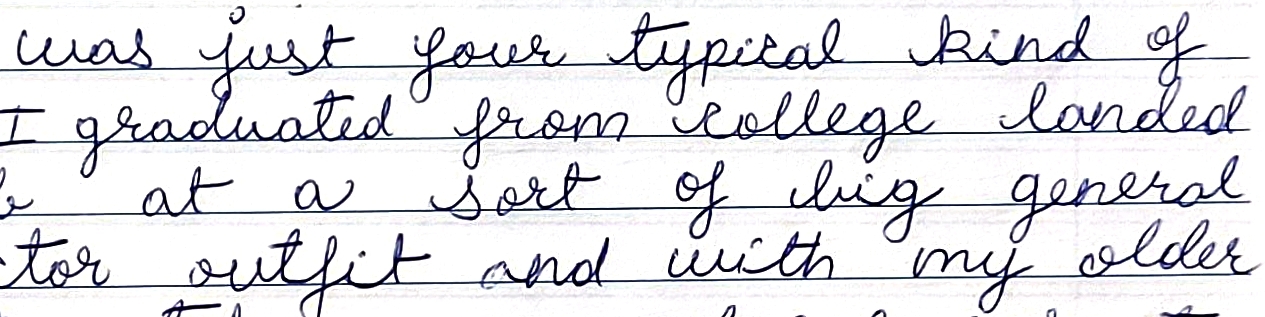 was just your typical kind of
I graduated from college landed
at a sort of big general
tor outfit and with my older